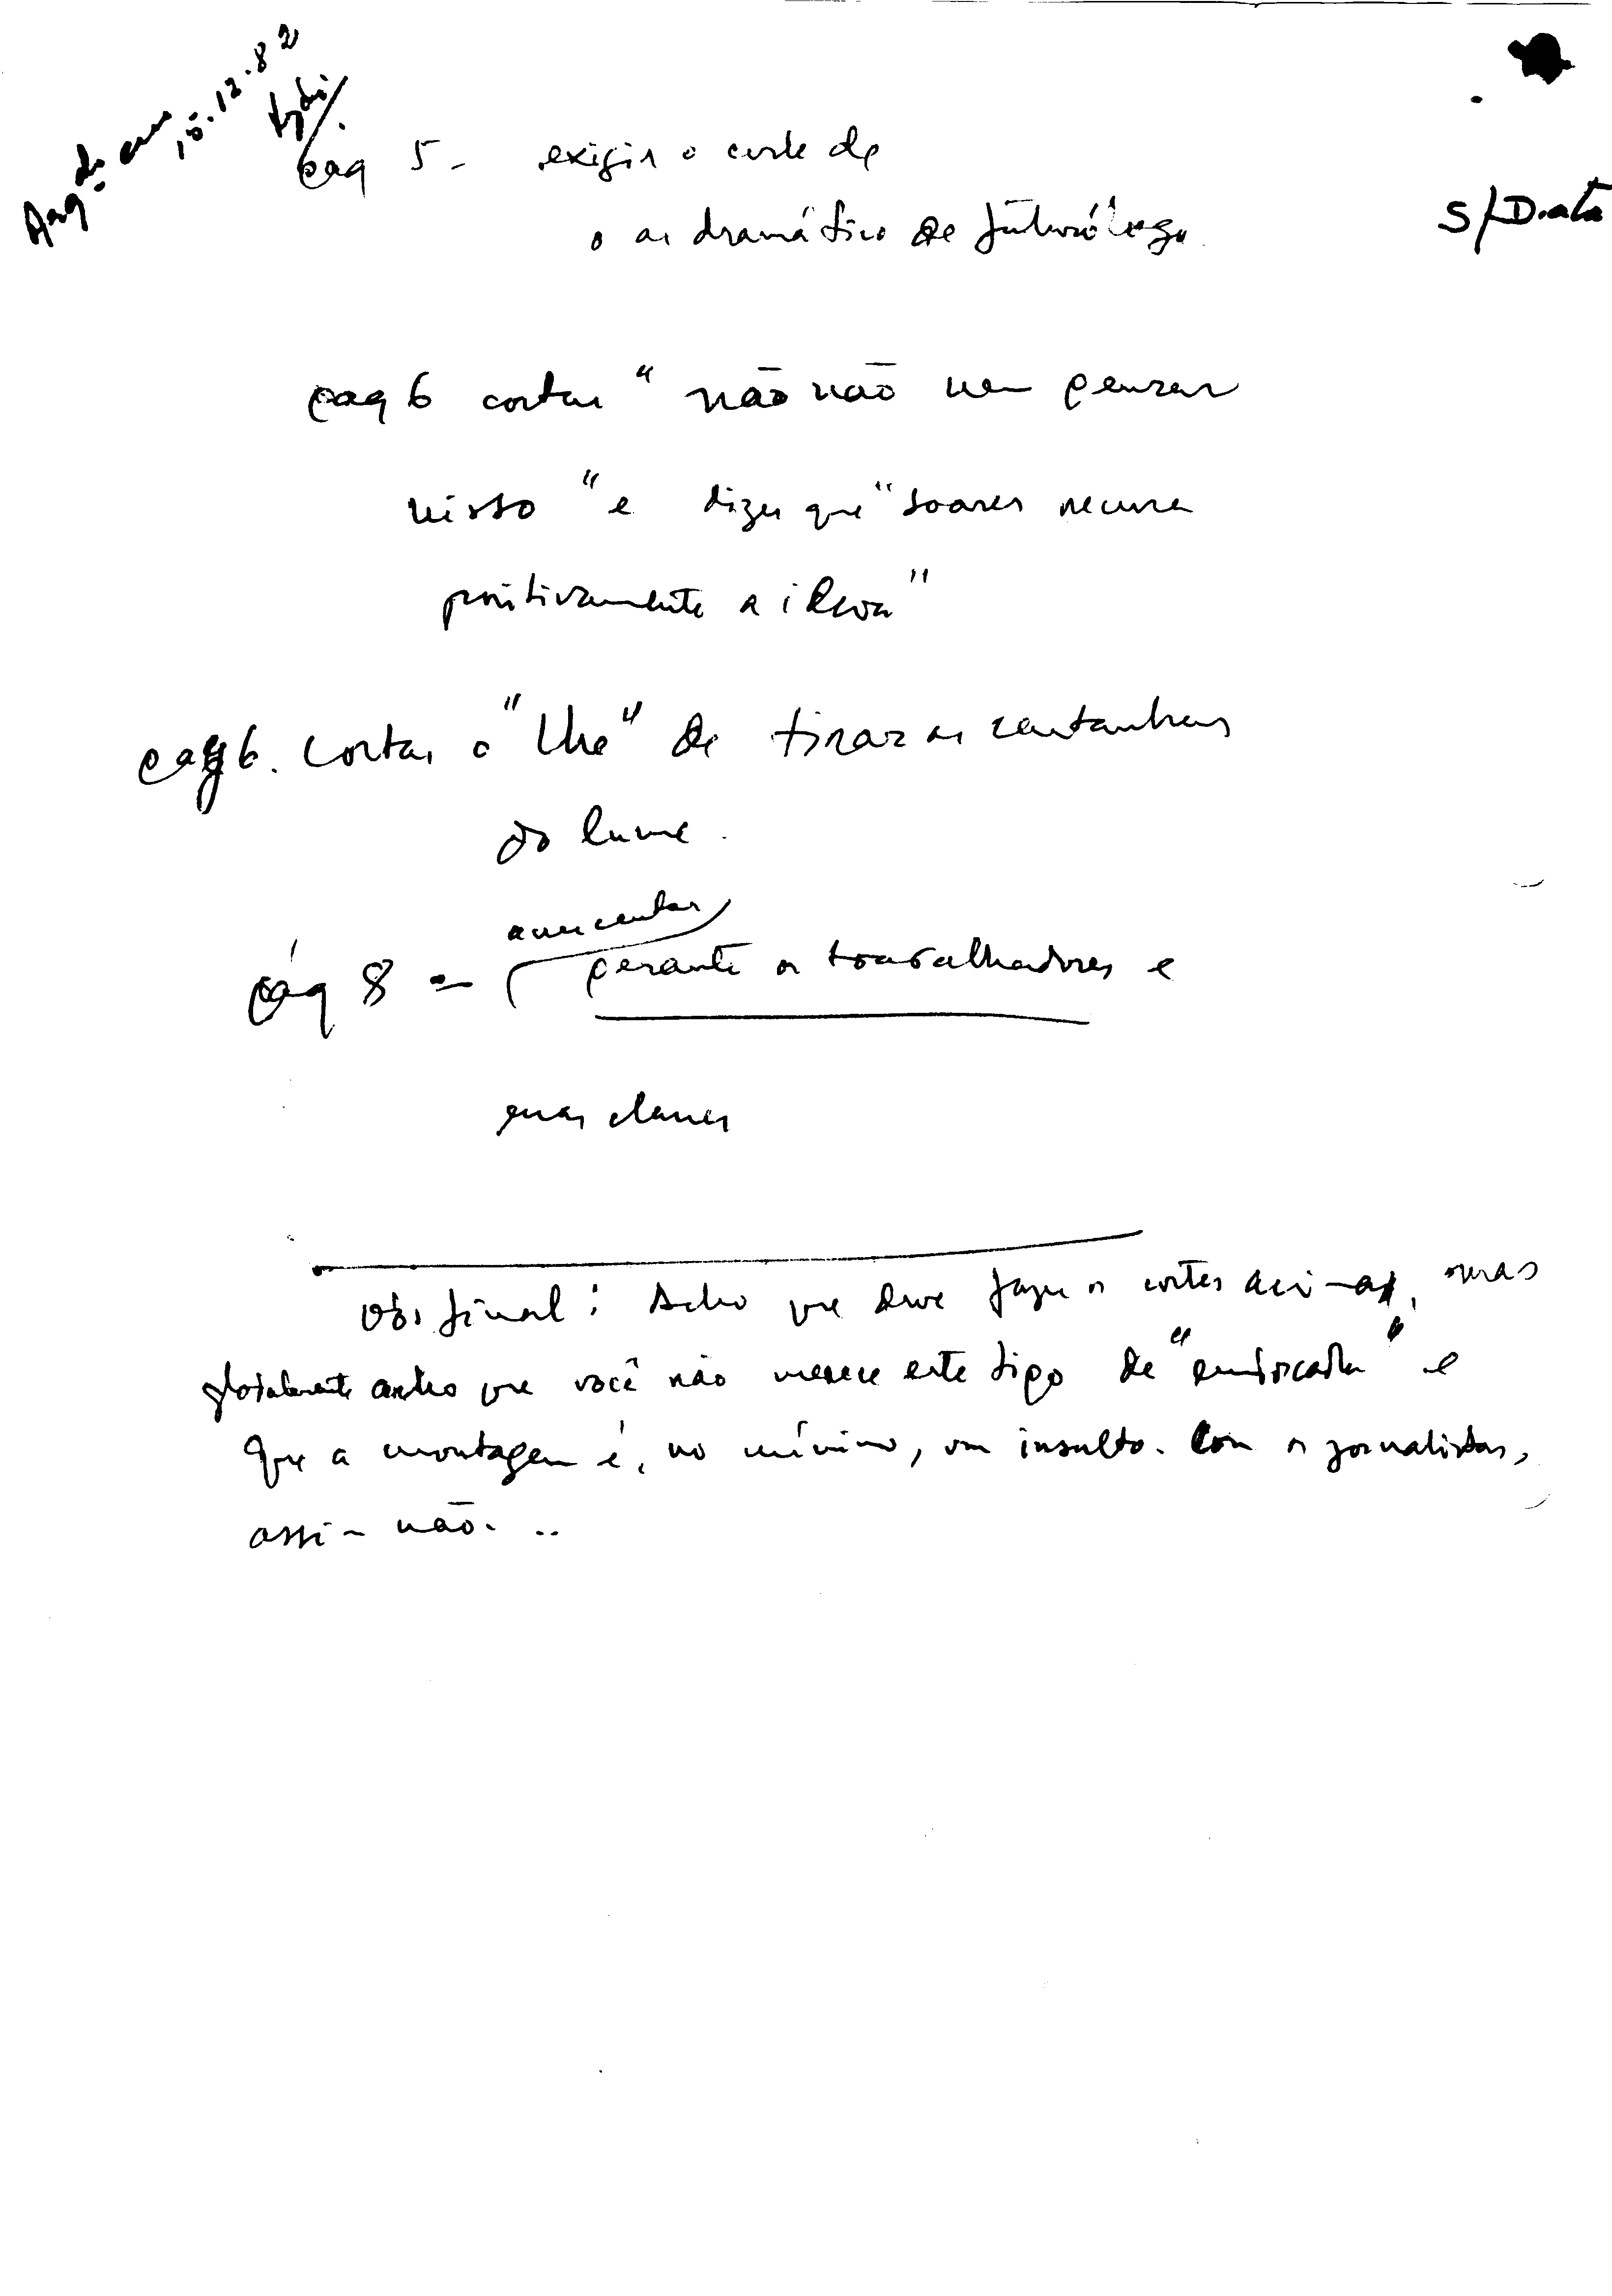 15.12.82
S/Data
pag 5 - exigir o corte de
o ar dramático de futurólogo
pag 6 cortar "não não nem pensar
nisso" e dizer que "Soares recusa
positivamente a ideia"
pag 6. Cortar o "lhe" de tirar as castanhas
do lume.
acrescentar
pág 8 - perante os trabalhadores e
suas classes
Obs final: Acho que deve fazer os cortes acima, mas
globalmente acho que você não merece este tipo de "emboscada" e
que a montagem é, no mínimo, um insulto. Com os jornalistas,
assim não...